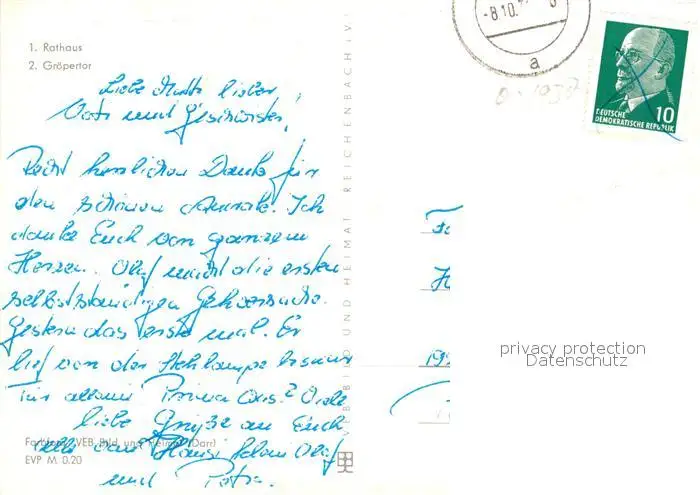 1. Rathaus
2. Gröpertor
Liebe Mutti lieber
Vati und Geschwister!
Recht herzlichen Dank für
den schönen
Ich
danke Euch von ganzem
Herzen. Olaf macht die ersten
selbstständigen Gehversuche.
Gestern das erste mal. Er
lief von der Stehlampe bis
Tür allein Prima was? Viele
liebe Grüße an Euch
alle von Olaf
und Petra.
Farbfoto: VEB Bild und Heimat (Darr)
EVP M 0.20
VEB BILD UND HEIMAT REICHENBACH I. V.
-8.10.
a
10
DEUTSCHE
DEMOKRATISCHE REPUBLIK
privacy protection
Datenschutz